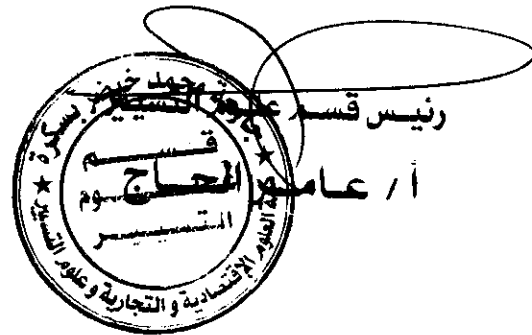 رئيس قسم علوم التسيير
أ / عامر الحاج
جامعة محمد خيضر بسكرة
قسم
علوم
التسيير
كلية العلوم الإقتصادية و التجارية و علوم التسيير